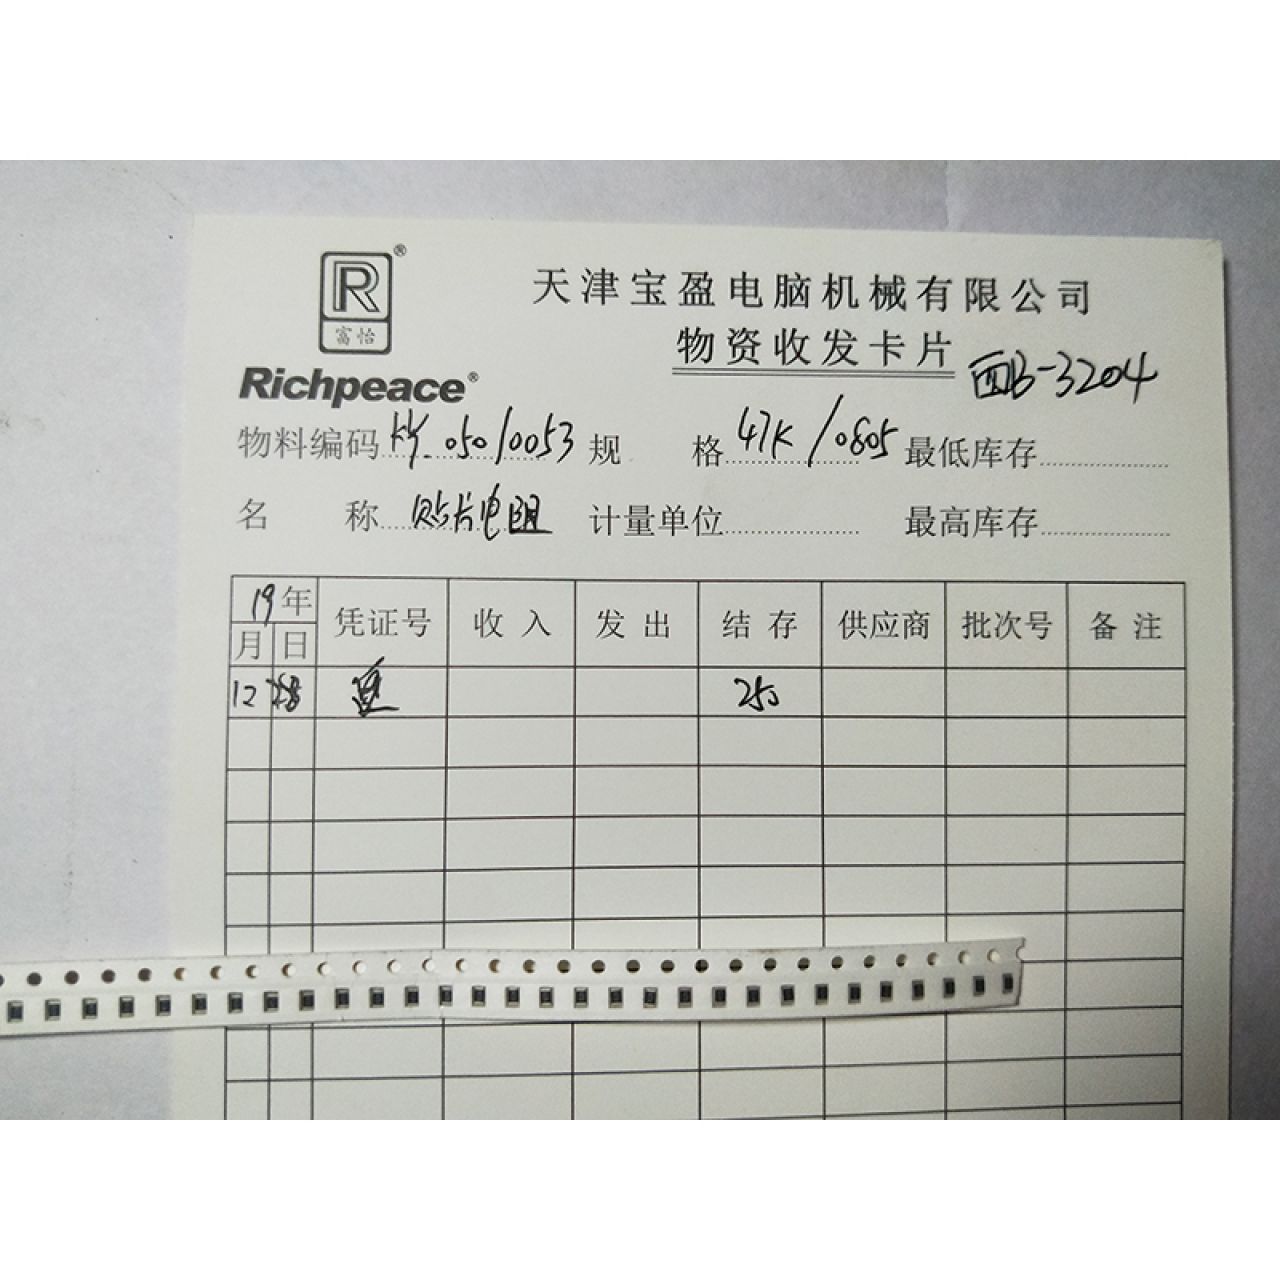 R®
富怡
Richpeace®
天津宝盈电脑机械有限公司
物资收发卡片
B-3204
物料编码 050/0053 规格 47K/0805 最低库存
名称 贴片电阻 计量单位 最高库存
19年 凭证号 收入 发出 结存 供应商 批次号 备注
月 日
12 28 250